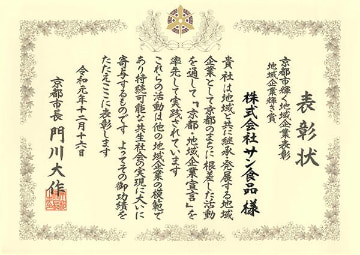 表彰状
京都市輝く地域企業表彰
地域企業輝き賞
株式会社サン食品 様
貴社は地域と共に継承・発展する地域
企業として京都のまちに根差した活動
を通して「京都・地域企業宣言」を
率先して実践されています
これらの活動は他の地域企業の模範で
あり持続可能な共生社会の実現に大いに
寄与するものです よってその御功績を
たたえここに表彰します
令和元年十二月十六日
京都市長 門川大作